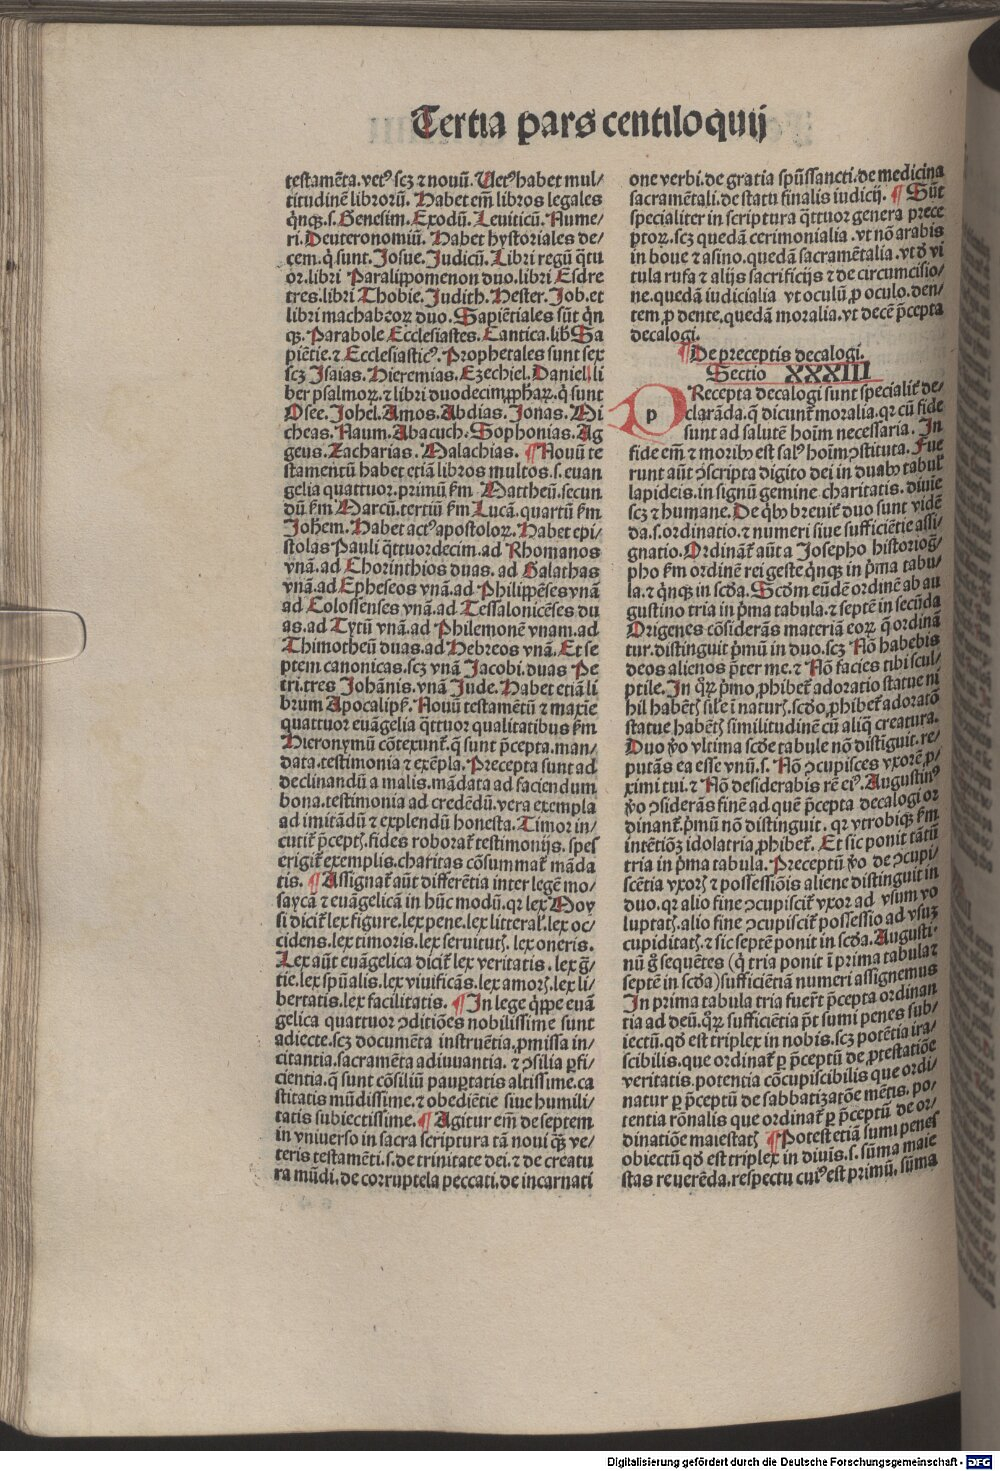 Tertia pars centiloquij
testamẽta.vetꝰ scꝫ ⁊ nouũ. Uetꝰ habet mul⸗
titudinẽ librorũ. Habet em̃ libros legales
q̇nqꝫ.s. Genesim. Exodũ. Leuiticũ. Nume⸗
ri. Deuteronomiũ. Habet hystoriales de⸗
cem. q̇ sunt. Josue. Judicũ. Libri regũ q̃tu
or. libri Paralippomenon duo. libri Esdre
tres. libri Thobie. Judith. Hester. Job. et
libri machabeoꝝ duo. Sapiẽtiales sũt q̇n
qꝫ. Parabole Ecclesiastes. Cantica. lib̃ Sa
piẽtie. ⁊ Ecclesiasticꝰ. Prophetales sunt sex
scꝫ Isaias. Hieremias. Ezechiel. Daniel li
ber psalmoꝝ. ⁊ libri duodecim ꝓphaꝝ. q̇ sunt
Osee. Johel. Amos. Abdias. Jonas. Mi
cheas. Naum. Abacuch. Sophonias. Ag
geus. Zacharias. Malachias. ¶ Nouũ te
stamentũ habet etiã libros multos. s. euan
gelia quattuor. primũ km̃ Mattheũ. secun
dũ km̃ Marcũ. tertiũ km̃ Lucã. quartũ km̃
Johẽm. Habet actꝰ apostoloꝝ. Habet epi⸗
stolas Pauli q̃ttuordecim. ad Rhomanos
vnã. ad Chorinthios duas. ad Galathas
vnã. ad Epheseos vnã. ad Philippẽses vnã
ad Colossenses vnã. ad Tessalonicẽses du
as. ad Tytũ vnã. ad Philemonẽ vnam. ad
Thimotheũ duas. ad Hebreos vnã. Et se
ptem canonicas. scꝫ vnã Jacobi. duas Pe
tri. tres Johãnis. vnã Jude. Habet etiã li
brum Apocalipẜ. Nouũ testamẽtũ ⁊ maxie
quattuor euãgelia q̃ttuor qualitatibus km̃
Hieronymũ cõtexunt᷑. q̃ sunt p̃cepta. man⸗
data. testimonia ⁊ exẽpla. Precepta sunt ad
declinandũ a malis. mãdata ad faciendum
bona. testimonia ad credẽdũ. vera exempla
ad imitãdũ ⁊ explendũ honesta. Timor in⸗
cutit᷑ p̃ceptꝭ. fides roborat᷑ testimonijs. spes
erigit᷑ exemplis. charitas cõsummat᷑ mãda
tis. ¶ Assignat᷑ aũt differẽtia inter legẽ mo⸗
saycã ⁊ euãgelicã in hũc modũ. qꝛ lex Moy
si dicit᷑ lex figure. lex pene. lex litteral᷑. lex oc⸗
cidens. lex timoris. lex seruitutꝭ. lex oneris.
Lex aũt euãgelica dicit᷑ lex veritatis. lex g̃⸗
tie. lex spũalis. lex viuificãs. lex amorꝭ. lex li⸗
bertatis. lex facilitatis. ¶ In lege q̇ppe euã
gelica quattuor ꝯditiões nobilissime sunt
adiecte. scꝫ documẽta instruẽtia, ꝓmissa in⸗
citantia. sacramẽta adiuuantia. ⁊ ꝯsilia ꝑfi⸗
cientia. q̃ sunt cõsiliũ paupertatis altissime. ca
stitatis mũdissime. ⁊ obediẽtie siue humili⸗
tatis subiectissime. ¶ Agitur em̃ de septem
in vniuerso in sacra scriptura tã noui qꝫ̃ ve⸗
teris testamẽti. s. de trinitate dei. ⁊ de creatu
ra mũdi. de corruptela peccati. de incarnati
one verbi. de gratia spũssancti. de medicina
sacramẽtali. de statu finalis iudicij. ¶ Sũt
specialiter in scriptura q̃ttuor genera prece
ptoꝝ. scꝫ quedã cerimonialia. vt nõ arabis
in boue ⁊ asino. quedã sacramẽtalia. vt d̓ vi
tula rufa ⁊ alijs sacrificijs ⁊ de circumcisio⸗
ne. quedã iudicialia vt oculũ ꝓ oculo. den⸗
tem ꝓ dente. quedã moralia. vt decẽ p̃cepta
decalogi.
¶ De preceptis decalogi.
Sectio XXXIII
pRecepta decalogi sunt specialit᷑ de⸗
clarãda. q̃ dicunt᷑ moralia. qꝛ cũ fide
sunt ad salutẽ hoĩm necessaria. In
fide em̃ ⁊ moribꝰ est salꝰ hoĩm ꝯstituta. Fue
runt aũt ꝯscripta digito dei in duabꝰ tabul᷑
lapideis. in signũ gemine charitatis. diuie
scꝫ ⁊ humane. De q̇bꝰ breuit᷑ duo sunt vidẽ
da. s. ordinatio. ⁊ numeri siue sufficiẽtie assi⸗
gnatio. Ordinãt᷑ aũt a Josepho historiog̃⸗
pho km̃ ordinẽ rei geste q̇nqꝫ in p̓ma tabu⸗
la. ⁊ q̇nqꝫ in scd̓a. Scd̓m eũdẽ ordinẽ ab au
gustino tria in p̓ma tabula. ⁊ septẽ in secũda
Origenes cõsiderãs materiã eoꝝ q̃ ordinã
tur. distinguit p̓mũ in duo. scꝫ Nõ habebis
deos alienos p̃ter me. ⁊ Nõ facies tibi scul⸗
ptile. In q̊ꝝ p̓mo, ꝓhibet᷑ adoratio statue ni
hil habẽtꝭ sile ĩ naturꝭ. scd̓o, ꝓhibet᷑ adoratõ
statue habẽtꝭ similitudinẽ cũ aliq̃ creatura.
Duo v̓o vltima scd̓e tabule nõ distĩguit. re⸗
putãs ea esse vnũ. s. Nõ ꝯcupisces vxorẽ ꝓ⸗
ximi tui. ⁊ Nõ desiderabis rẽ eiꝰ. Augustinꝰ
v̓o ꝯsiderãs finẽ ad quẽ p̃cepta decalogi or
dinant᷑. p̓mũ nõ distinguit. qꝛ vtrobiqꝫ km̃
intẽtiõꝫ idolatria ꝓhibet᷑. Et sic ponit tãtũ
tria in p̓ma tabula. Preceptũ v̓o de ꝯcupi⸗
scẽtia vxorꝭ ⁊ possessiõis aliene distinguit in
duo. qꝛ alio fine ꝯcupiscit᷑ vxor ad vsum vo
luptatꝭ. alio fine ꝯcupiscit᷑ possessio ad vsuꝫ
cupiditatꝭ. ⁊ sic septẽ ponit in scd̓a. Augusti⸗
nũ g̊ sequẽtes (q̇ tria ponit ĩ prima tabula ⁊
septẽ in scd̓a) sufficiẽtiã numeri assignemus
In prima tabula tria fuer̃t p̃cepta ordinan
tia ad deũ. q̊ꝝ sufficiẽtia p̃t sumi penes sub⸗
iectũ. qd̓ est triplex in nobis. scꝫ potẽtia ira⸗
scibilis. que ordinat᷑ ꝑ p̃ceptũ de ꝓtestatiõe
veritatis. potentia cõcupiscibilis que ordi⸗
natur ꝑ p̃ceptũ de sabbatizatõe mẽtis. po⸗
tentia rõnalis que ordinat᷑ ꝑ p̃ceptũ de or⸗
dinatiõe maiestatꝭ ¶ Potest etiã sumi penes
obiectũ qd̓ est triplex in diuis. s. sũma maie
stas reuerẽda. respectu cuiꝰ est primũ, sũma
Digitalisierung gefördert durch die Deutsche Forschungsgemeinschaft - DFG